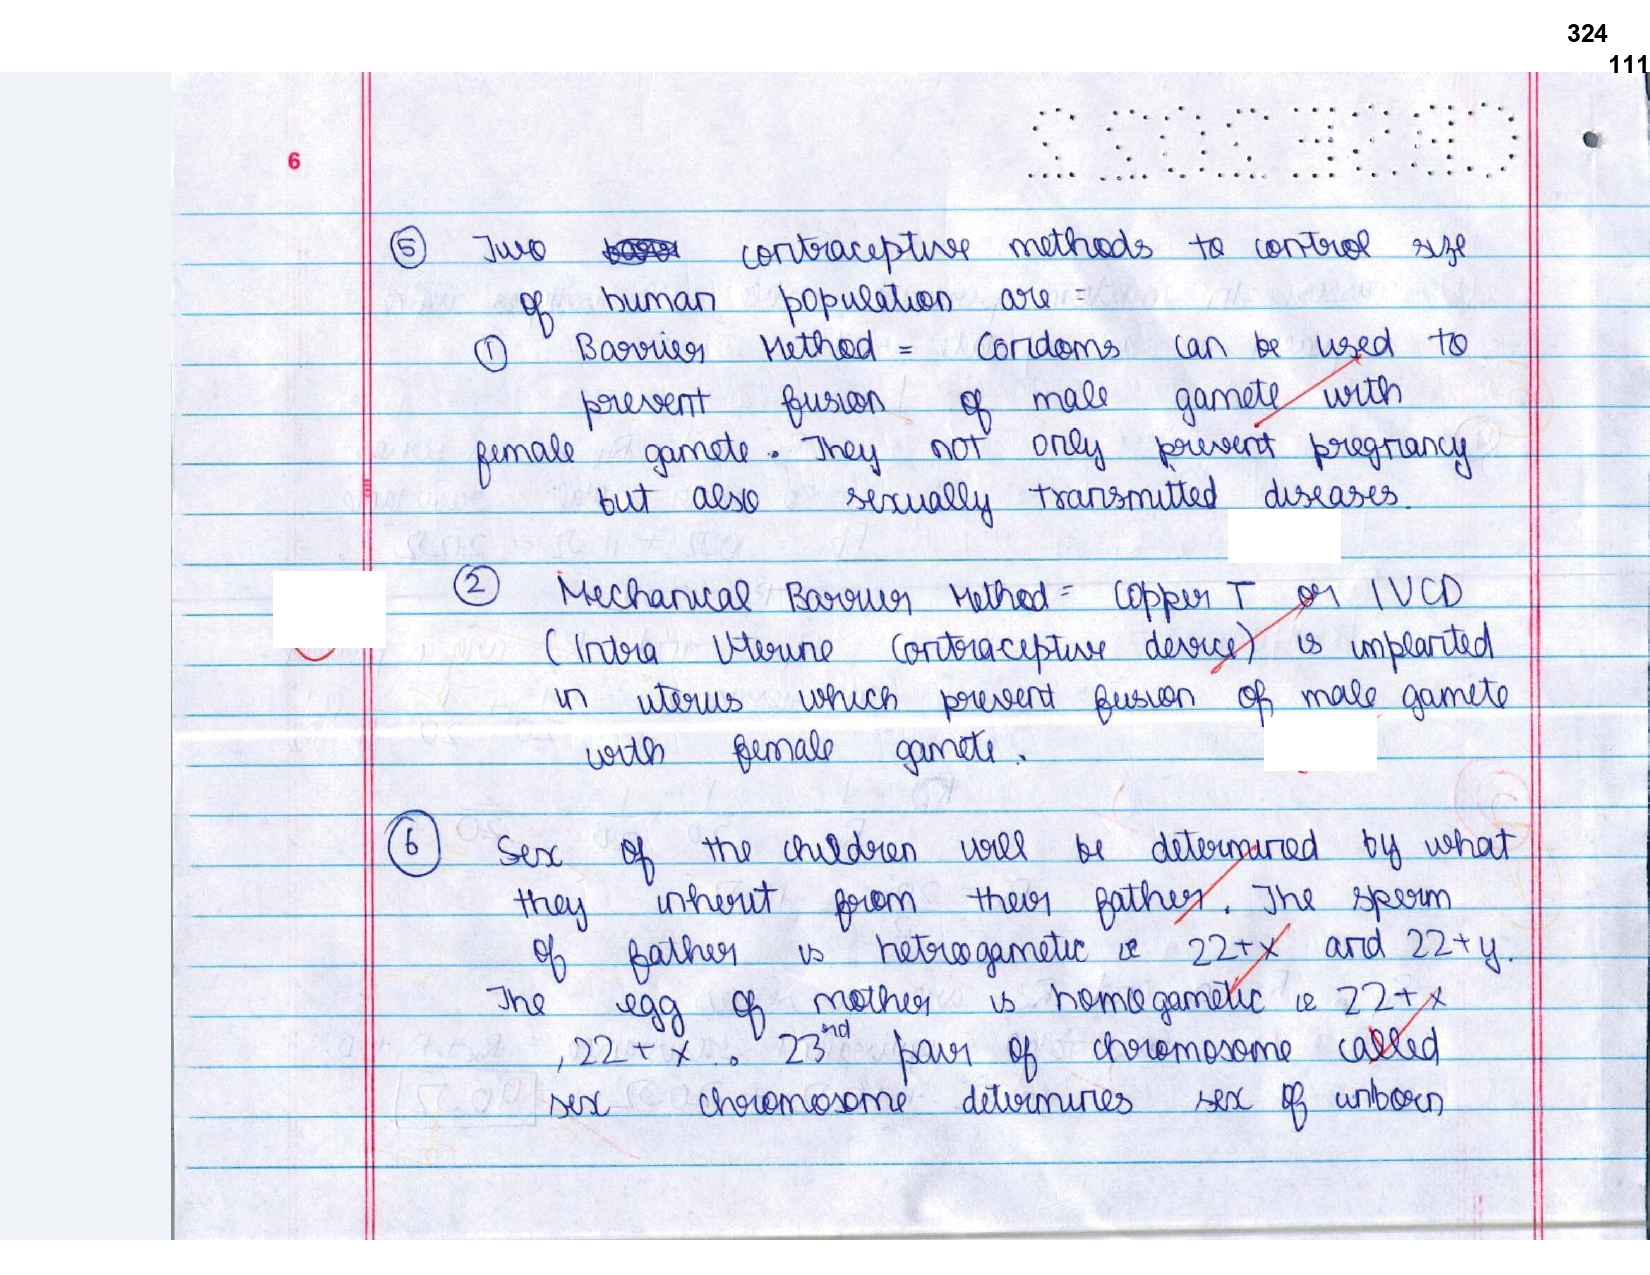 324
111
6
CBSE2022
5 Two contraceptive methods to control size
of human population are =
1 Barrier Method = Condoms can be used to
prevent fusion of male gamete with
female gamete. They not only prevent pregnancy
but also sexually transmitted diseases.
2 Mechanical Barrier Method = Copper T or IVCD
(Intra Uterine Contraceptive device) is implanted
in uterus which prevent fusion of male gamete
with female gamete.
6 Sex of the children will be determined by what
they inherit from their father. The sperm
of father is hetrogametic ie 22+x and 22+y.
The egg of mother is homogametic ie 22+x
,22+x. 23nd pair of chromosome called
sex chromosome determines sex of unborn